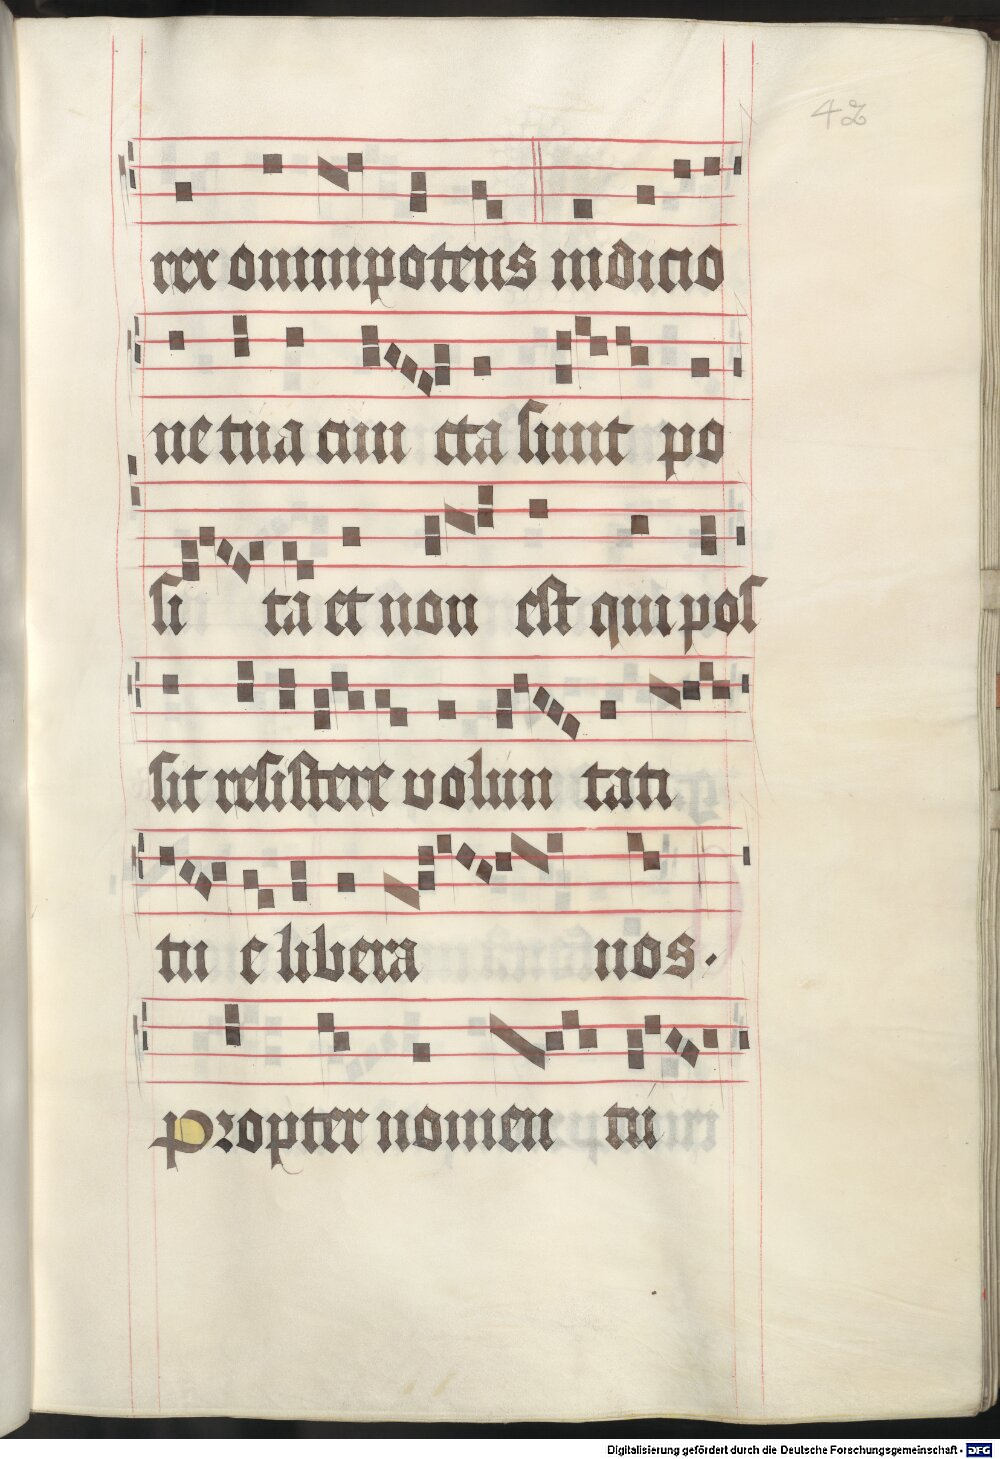 42
rex omnipotens in dicio
ne tua cun cta sunt po
si ta et non est qui pos
sit resistere volun tati
tu e libera nos.
Propter nomen tu
Digitalisierung gefördert durch die Deutsche Forschungsgemeinschaft - DFG